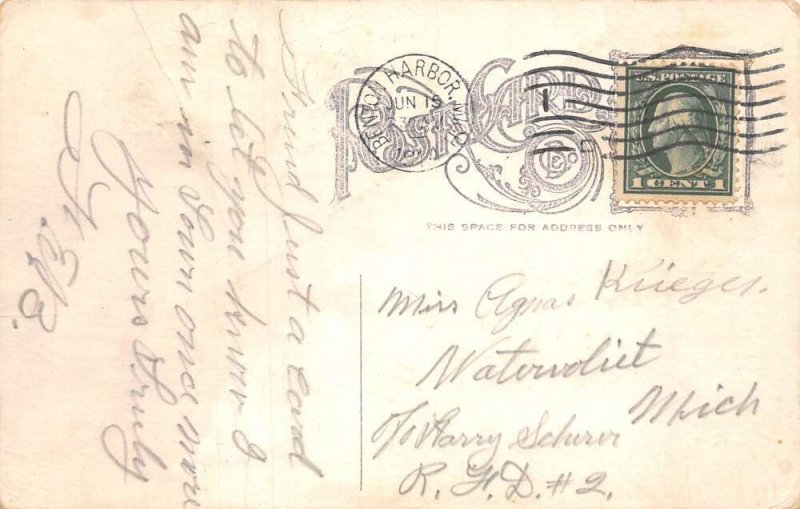 Friend Just a Card
to let you know I
am in town once more
Yours Truly
BENTON HARBOR, MICH.
JUN 15
POST CARD
U.S. POSTAGE
1 CENT 1
THIS SPACE FOR ADDRESS ONLY
Miss Agnas Krieger.
Watervliet
Mich
c/o Harry Scherer
R. F. D. #2.